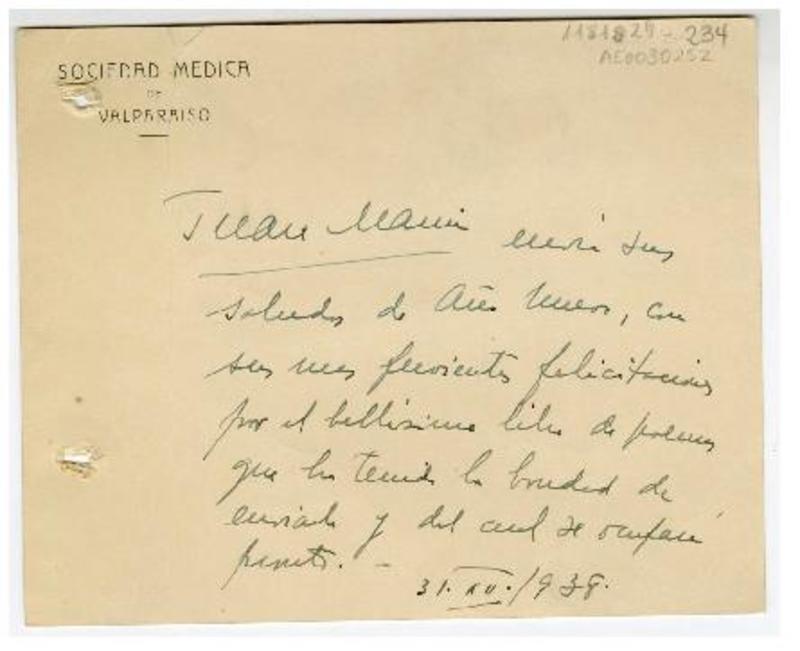 1181829 - 234
AE0030252
SOCIEDAD MEDICA
DE
VALPARAISO
Juan Marin envia sus
saludos de Año Nuevo, con
sus mas fervientes felicitaciones
por el bellisimo libro de poemas
que ha tenido la bondad de
enviarle y del cual se ocupará
pronto. -
31. XII. / 938.